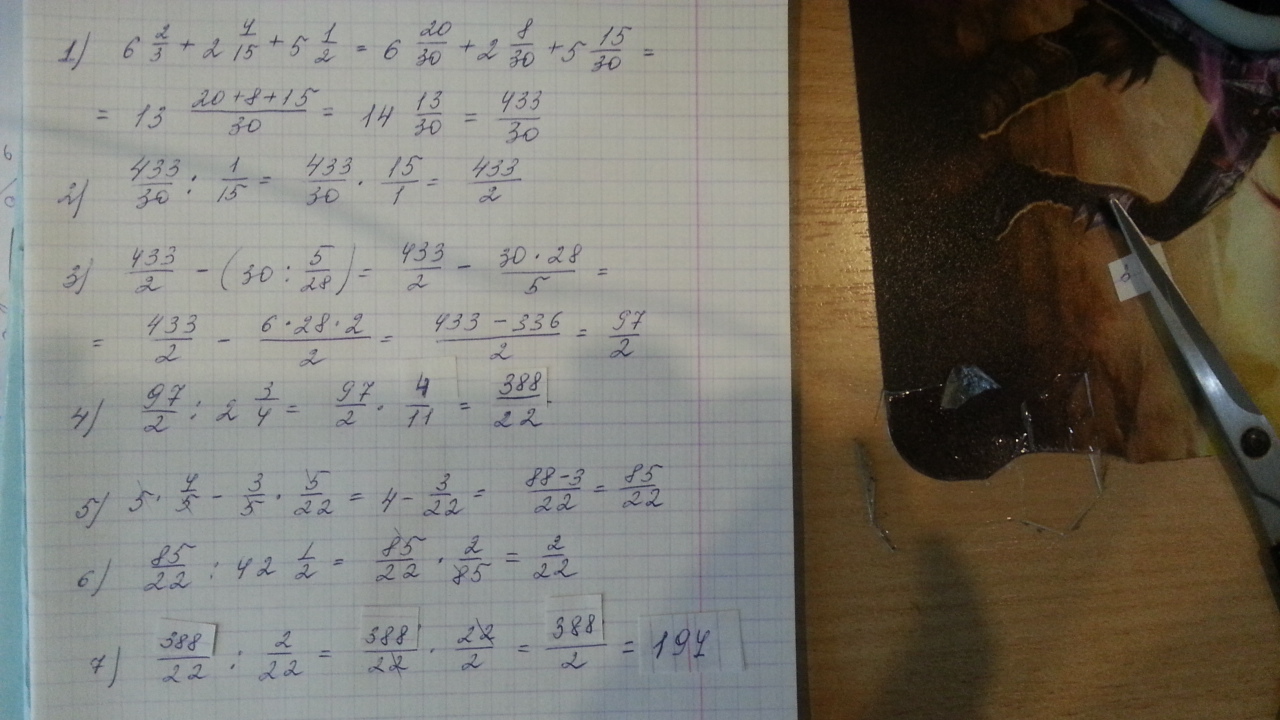 1) 6 2/3 + 2 4/15 + 5 1/2 = 6 20/30 + 2 8/30 + 5 15/30 =
= 13 (20+8+15)/30 = 14 13/30 = 433/30
2) 433/30 : 1/15 = 433/30 · 15/1 = 433/2
3) 433/2 - (30 : 5/28) = 433/2 - (30·28)/5 =
= 433/2 - (6·28·2)/2 = (433-336)/2 = 97/2
4) 97/2 : 2 3/4 = 97/2 · 4/11 = 388/22
5) 5 · 4/5 - 3/5 · 5/22 = 4 - 3/22 = (88-3)/22 = 85/22
6) 85/22 : 42 1/2 = 85/22 · 2/85 = 2/22
7) 388/22 : 2/22 = 388/22 · 22/2 = 388/2 = 194